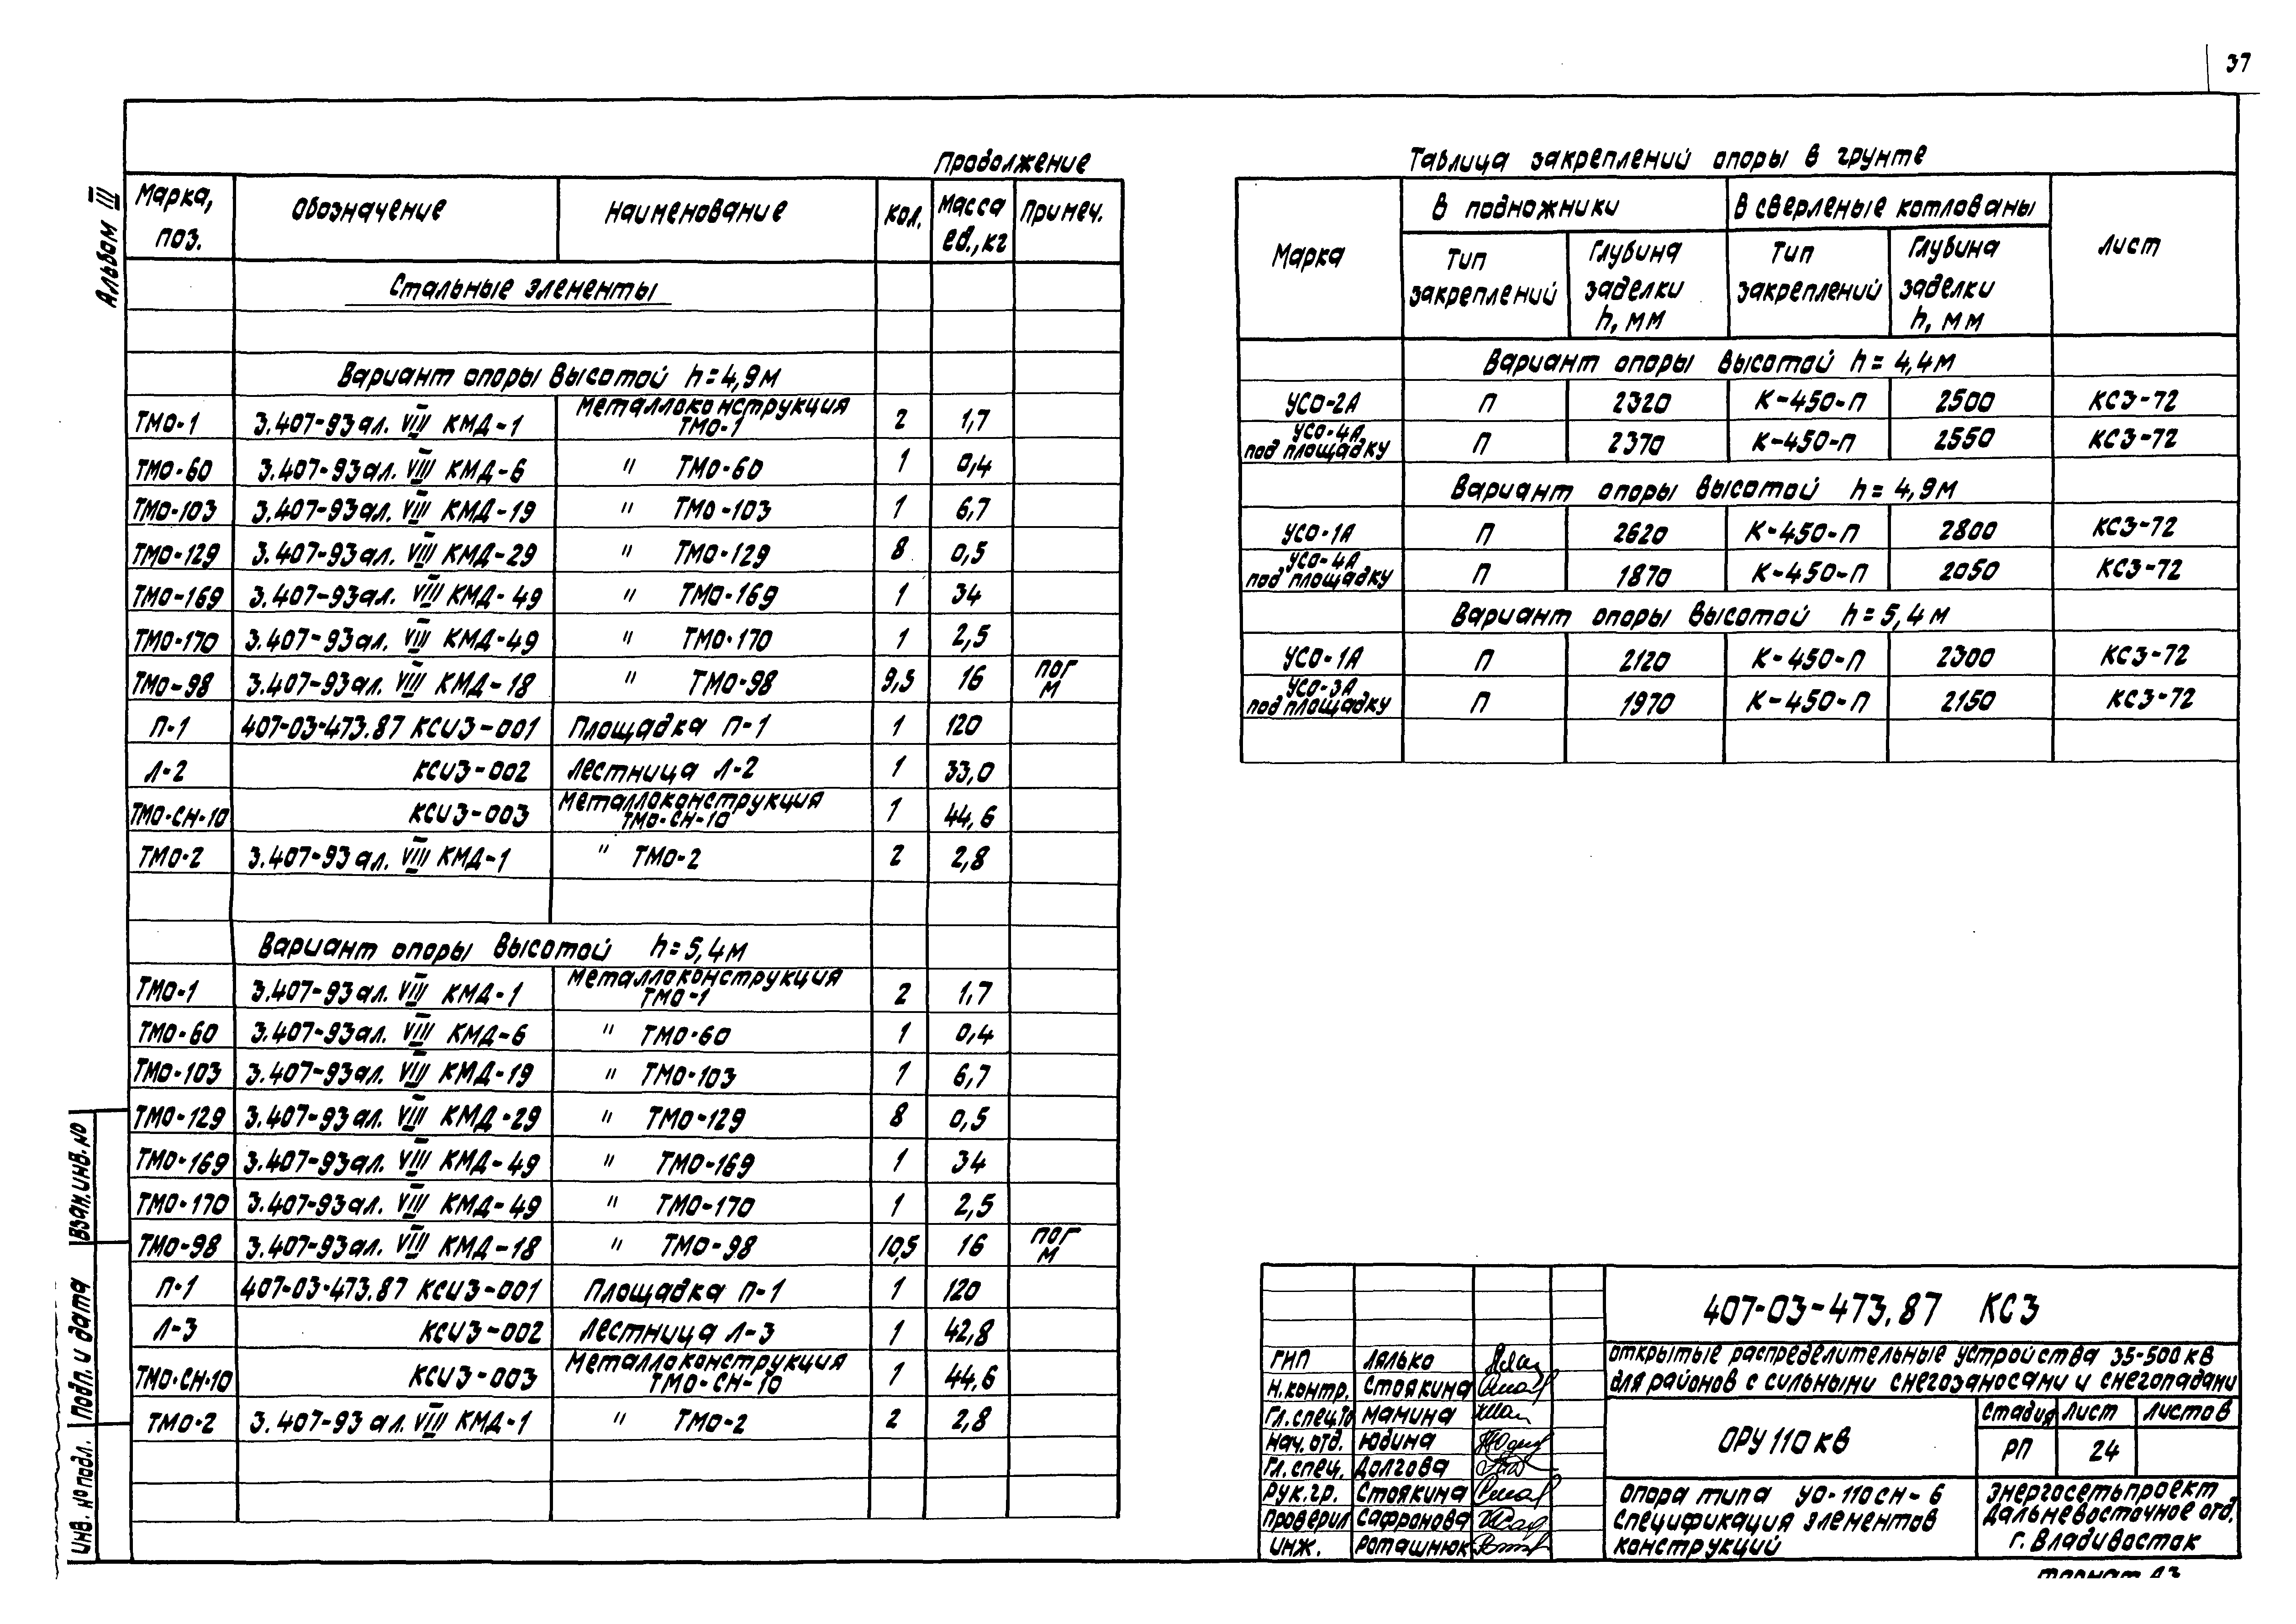 37
Альбом III
Продолжение
Марка, поз. Обозначение Наименование Кол. Масса ед., кг Примеч.
Стальные элементы
Вариант опоры высотой h=4,9м
ТМО-1 3.407-93 ал. VIII КМД-1 Металлоконструкция ТМО-1 2 1,7
ТМО-60 3.407-93 ал. VIII КМД-6 " ТМО-60 1 0,4
ТМО-103 3.407-93 ал. VIII КМД-19 " ТМО-103 1 6,7
ТМО-129 3.407-93 ал. VIII КМД-29 " ТМО-129 8 0,5
ТМО-169 3.407-93 ал. VIII КМД-49 " ТМО-169 1 34
ТМО-170 3.407-93 ал. VIII КМД-49 " ТМО-170 1 2,5
ТМО-98 3.407-93 ал. VIII КМД-18 " ТМО-98 9,5 16 пог м
П-1 407-03-473.87 КСИ3-001 Площадка П-1 1 120
Л-2 КСИ3-002 Лестница Л-2 1 33,0
ТМО-СН-10 КСИ3-003 Металлоконструкция ТМО-СН-10 1 44,6
ТМО-2 3.407-93 ал. VIII КМД-1 " ТМО-2 2 2,8
Вариант опоры высотой h=5,4м
ТМО-1 3.407-93 ал. VIII КМД-1 Металлоконструкция ТМО-1 2 1,7
ТМО-60 3.407-93 ал. VIII КМД-6 " ТМО-60 1 0,4
ТМО-103 3.407-93 ал. VIII КМД-19 " ТМО-103 1 6,7
ТМО-129 3.407-93 ал. VIII КМД-29 " ТМО-129 8 0,5
ТМО-169 3.407-93 ал. VIII КМД-49 " ТМО-169 1 34
ТМО-170 3.407-93 ал. VIII КМД-49 " ТМО-170 1 2,5
ТМО-98 3.407-93 ал. VIII КМД-18 " ТМО-98 10,5 16 пог м
П-1 407-03-473.87 КСИ3-001 Площадка П-1 1 120
Л-3 КСИ3-002 Лестница Л-3 1 42,8
ТМО-СН-10 КСИ3-003 Металлоконструкция ТМО-СН-10 1 44,6
ТМО-2 3.407-93 ал. VIII КМД-1 " ТМО-2 2 2,8
Взам. инв. №
Подп. и дата
Инв. № подл.
Таблица закреплений опоры в грунте
Марка В подножники В сверленые котлованы Лист
Тип закреплений Глубина заделки h, мм Тип закреплений Глубина заделки h, мм
Вариант опоры высотой h=4,4м
УСО-2А П 2320 К-450-П 2500 КС3-72
УСО-4А под площадку П 2370 К-450-П 2550 КС3-72
Вариант опоры высотой h=4,9м
УСО-1А П 2620 К-450-П 2800 КС3-72
УСО-4А под площадку П 1870 К-450-П 2050 КС3-72
Вариант опоры высотой h=5,4м
УСО-1А П 2120 К-450-П 2300 КС3-72
УСО-3А под площадку П 1970 К-450-П 2150 КС3-72
407-03-473.87 КС3
Открытые распределительные устройства 35-500 кВ
для районов с сильными снегозаносами и снегопадами
ГИП Лялько
Н.контр. Стоякина
Гл.спец.То Мамина
Нач. отд. Юдина
Гл. спец. Долгова
Рук. гр. Стоякина
Проверил Сафронова
Инж. Роташнюк
ОРУ 110 кВ
Стадия Лист Листов
РП 24
Опора типа УО-110СН-6
Спецификация элементов
конструкций
Энергосетьпроект
Дальневосточное отд.
г. Владивосток
Формат А3